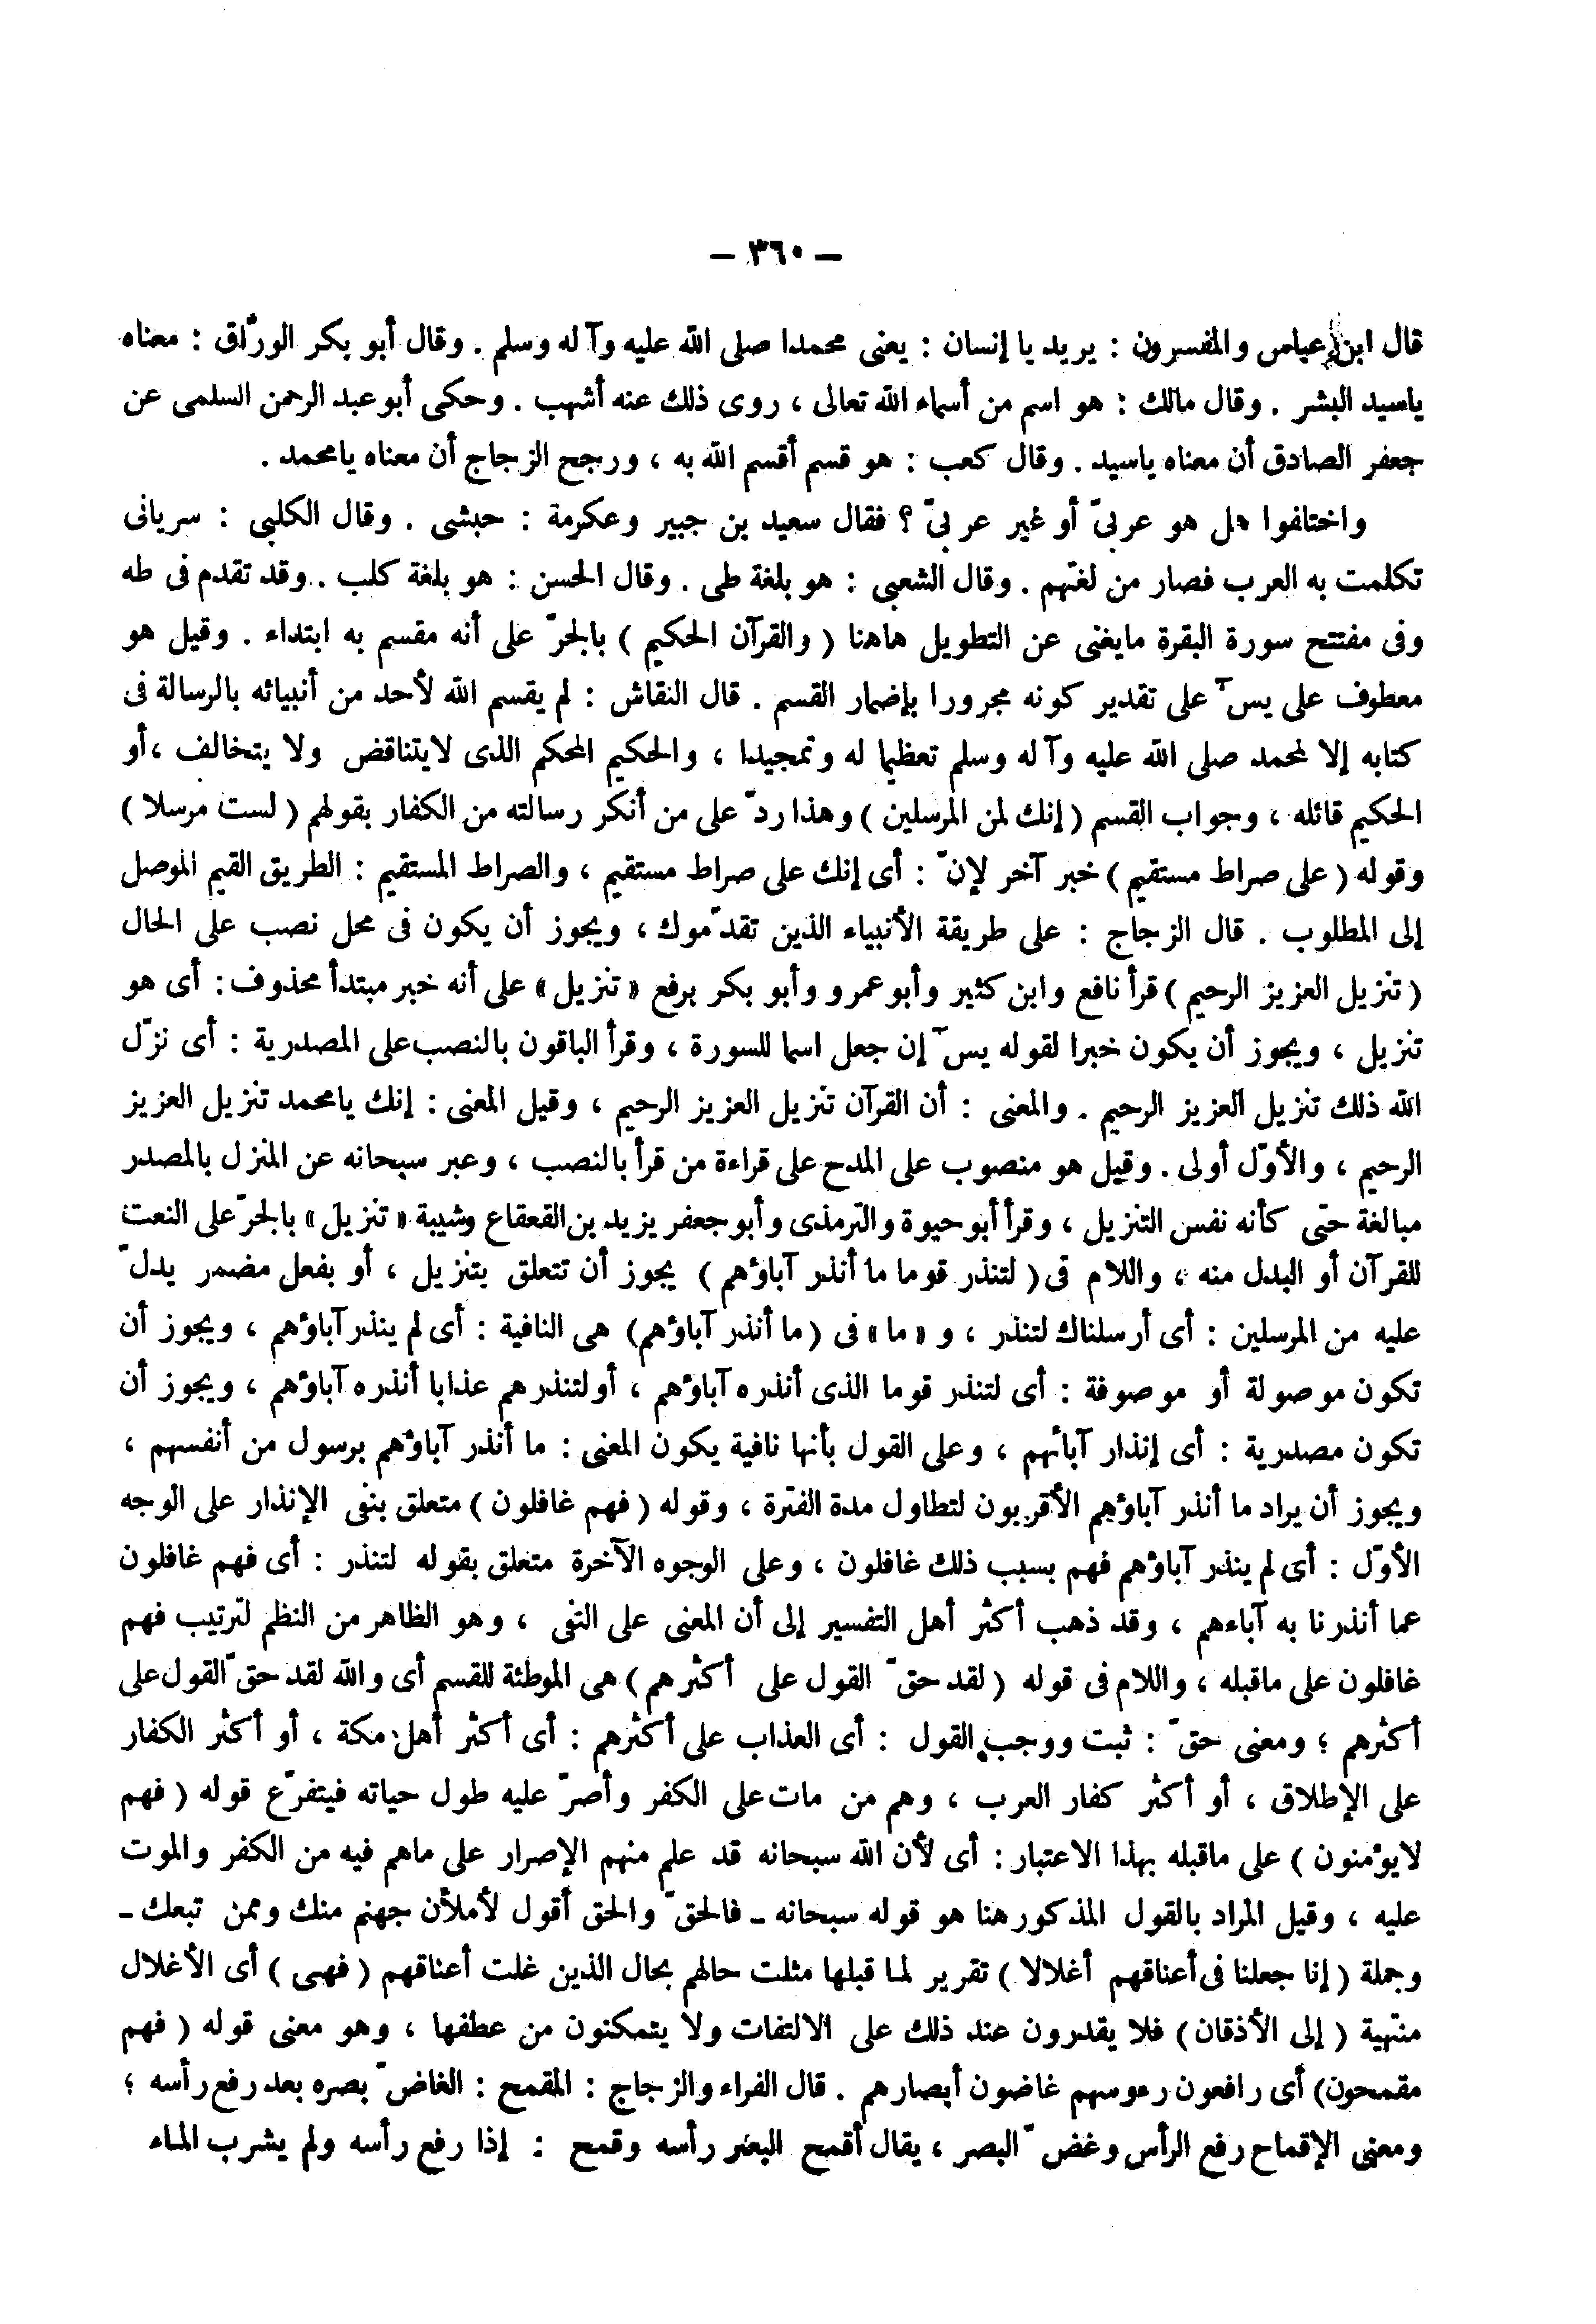 – ٣٦٠ –
قال ابن عباس والمفسرون : يريد يا إنسان : يعنى محمدا صلى الله عليه وآله وسلم . وقال أبو بكر الورّاق : معناه
ياسيد البشر . وقال مالك : هو اسم من أسماء الله تعالى ، روى ذلك عنه أشهب . وحكى أبو عبد الرحمن السلمى عن
جعفر الصادق أن معناه ياسيد . وقال كعب : هو قسم أقسم الله به ، ورجح الزجاج أن معناه يامحمد .
واختلفوا هل هو عربىّ أو غير عربىّ ؟ فقال سعيد بن جبير وعكرمة : حبشى . وقال الكلبى : سريانى
تكلمت به العرب فصار من لغتهم . وقال الشعبى : هو بلغة طى . وقال الحسن : هو بلغة كلب . وقد تقدم فى طه
وفى مفتتح سورة البقرة مايغنى عن التطويل هاهنا ( والقرآن الحكيم ) بالجرّ على أنه مقسم به ابتداء . وقيل هو
معطوف على يسۤ على تقدير كونه مجرورا بإضمار القسم . قال النقاش : لم يقسم الله لأحد من أنبيائه بالرسالة فى
كتابه إلا لمحمد صلى الله عليه وآله وسلم تعظيما له وتمجيدا ، والحكيم المحكم الذى لايتناقض ولا يتخالف ، أو
الحكيم قائله ، وجواب القسم ( إنك لمن المرسلين ) وهذا ردّ على من أنكر رسالته من الكفار بقولهم ( لست مرسلا )
وقوله ( على صراط مستقيم ) خبر آخر لإنّ : أى إنك على صراط مستقيم ، والصراط المستقيم : الطريق القيم الموصل
إلى المطلوب . قال الزجاج : على طريقة الأنبياء الذين تقدّموك ، ويجوز أن يكون فى محل نصب على الحال
( تنزيل العزيز الرحيم ) قرأ نافع وابن كثير وأبو عمرو وأبو بكر برفع « تنزيل » على أنه خبر مبتدأ محذوف : أى هو
تنزيل ، ويجوز أن يكون خبرا لقوله يسۤ إن جعل اسما للسورة ، وقرأ الباقون بالنصب على المصدرية : أى نزّل
الله ذلك تنزيل العزيز الرحيم . والمعنى : أن القرآن تنزيل العزيز الرحيم ، وقيل المعنى : إنك يامحمد تنزيل العزيز
الرحيم ، والأوّل أولى . وقيل هو منصوب على المدح على قراءة من قرأ بالنصب ، وعبر سبحانه عن المنزل بالمصدر
مبالغة حتى كأنه نفس التنزيل ، وقرأ أبو حيوة والترمذى وأبو جعفر يزيد بن القعقاع وشيبة « تنزيل » بالجرّ على النعت
للقرآن أو البدل منه ، واللام فى ( لتنذر قوما ما أنذر آباؤهم ) يجوز أن تتعلق بتنزيل ، أو بفعل مضمر يدلّ
عليه من المرسلين : أى أرسلناك لتنذر ، و « ما » فى ( ما أنذر آباؤهم ) هى النافية : أى لم ينذر آباؤهم ، ويجوز أن
تكون موصولة أو موصوفة : أى لتنذر قوما الذى أنذره آباؤهم ، أو لتنذرهم عذابا أنذره آباؤهم ، ويجوز أن
تكون مصدرية : أى إنذار آبائهم ، وعلى القول بأنها نافية يكون المعنى : ما أنذر آباؤهم برسول من أنفسهم ،
ويجوز أن يراد ما أنذر آباؤهم الأقربون لتطاول مدة الفترة ، وقوله ( فهم غافلون ) متعلق بنفى الإنذار على الوجه
الأوّل : أى لم ينذر آباؤهم فهم بسبب ذلك غافلون ، وعلى الوجوه الآخرة متعلق بقوله لتنذر : أى فهم غافلون
عما أنذرنا به آباءهم ، وقد ذهب أكثر أهل التفسير إلى أن المعنى على النفى ، وهو الظاهر من النظم لترتيب فهم
غافلون على ماقبله ، واللام فى قوله ( لقد حقّ القول على أكثرهم ) هى الموطئة للقسم أى والله لقد حقّ القول على
أكثرهم ؛ ومعنى حقّ : ثبت ووجب القول : أى العذاب على أكثرهم : أى أكثر أهل مكة ، أو أكثر الكفار
على الإطلاق ، أو أكثر كفار العرب ، وهم من مات على الكفر وأصرّ عليه طول حياته فيتفرّع قوله ( فهم
لايؤمنون ) على ماقبله بهذا الاعتبار : أى لأن الله سبحانه قد علم منهم الإصرار على ماهم فيه من الكفر والموت
عليه ، وقيل المراد بالقول المذكور هنا هو قوله سبحانه ـ فالحقّ والحق أقول لأملأن جهنم منك وممن تبعك ـ
وجملة ( إنا جعلنا فى أعناقهم أغلالا ) تقرير لما قبلها مثلت حالهم بحال الذين غلت أعناقهم ( فهى ) أى الأغلال
منتهية ( إلى الأذقان ) فلا يقدرون عند ذلك على الالتفات ولا يتمكنون من عطفها ، وهو معنى قوله ( فهم
مقمحون) أى رافعون رءوسهم غاضون أبصارهم . قال الفراء والزجاج : المقمح : الغاضّ بصره بعد رفع رأسه ؛
ومعنى الإقماح رفع الرأس وغضّ البصر ، يقال أقمح البعير رأسه وقمح : إذا رفع رأسه ولم يشرب الماء